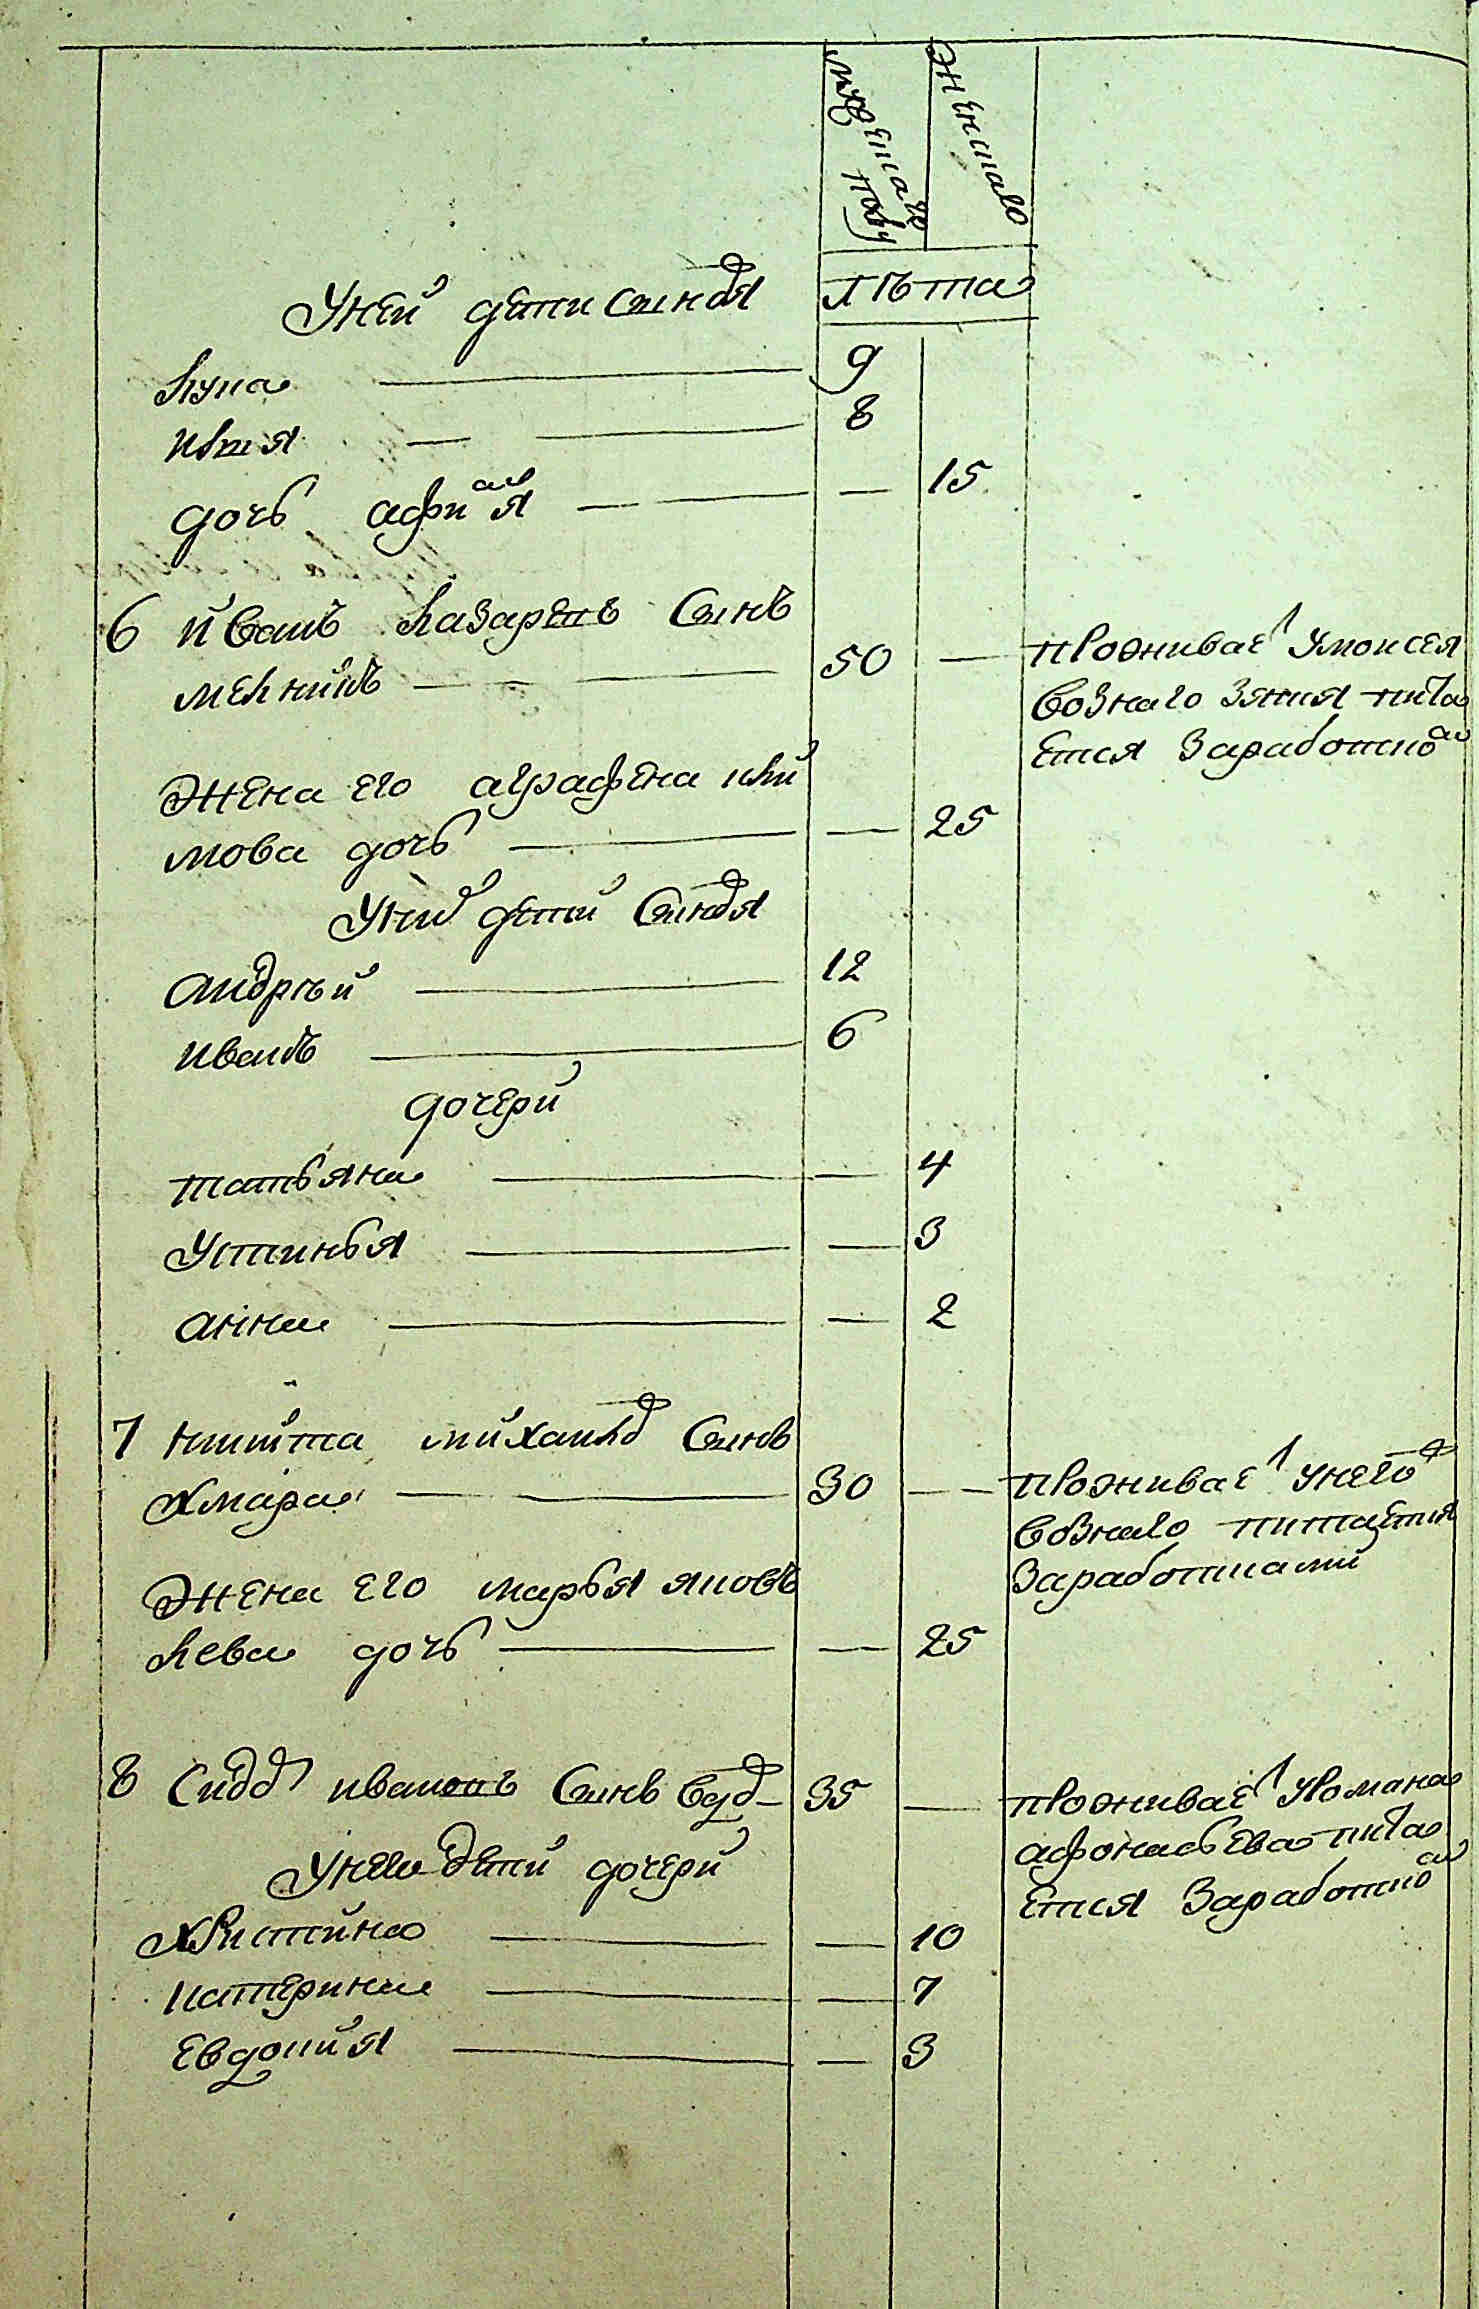 мужеска полу
женска
лѣта
У ней дети сыновя
Лука 9
Илия 8
дочь афимя 15
6 Иванъ Лазаревъ Сынъ
мелникъ 50 проживае У моисея
возного зятия пита
ется Заработко
жена его аграфена кли
мова дочь 25
У них дети Сыновя
андрѣй 12
иванъ 6
дочери
татьяна 4
Устинья 3
анна 2
7 Никита михаилов Сынъ
Хмара 30 проживае У него
возного питается
Заработками
жена его марья яков
лева дочь 25
8 Сидор иванов Сынъ 35 проживае У Романа
афонасьева пита
ется Заработко
У него дети дочери
Христина 10
катерина 7
Евдокия 3